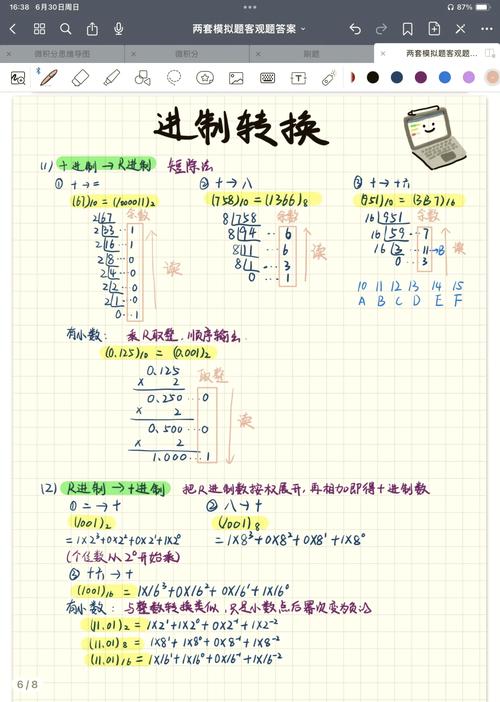 16:38 6月30日周日
87%
两套模拟题客观题答案
微积分思维导图
微积分
刷题
两套模拟题客观题...
进制转换
(1) 十进制→R进制 短除法
① 十→二
(67)10 = (1000011)2
余数
2|67
2|33...1
2|16...1
2|8...0
2|4...0
2|2...0
2|1...0
0...1
读
② 十→八
(758)10 = (1366)8
余数
8|758
8|94...6
8|11...6
8|1...3
0...1
读
③ 十→十六
(951)10 = (3B7)16
余数
16|951
16|59...7
16|3...11→B
0...3
读
10 11 12 13 14 15
A B C D E F
有小数: 乘R取整,顺序输出
(0.125)10 = (0.001)2
取整
0.125
× 2
0.250...0
× 2
0.500...0
× 2
1.000...1
读
(2) R进制→十进制 把R进制数按权展开,再相加即得十进制数
① 二→十
(1001)2
=1×2³+0×2²+0×2¹+1×2⁰
(个位数从2⁰开始乘)
② 八→十
(1001)8
=1×8³+0×8²+0×8¹+1×8⁰
③ 十六→十
(1001)16 = 1×16³+0×16²+0×16¹+1×16⁰
有小数: 与整数转换类似,只是小数点后幂次变为负
(11.01)2 = 1×2¹+1×2⁰+0×2⁻¹+1×2⁻²
(11.01)8 = 1×8¹+1×8⁰+0×8⁻¹+1×8⁻²
(11.01)16 = 1×16¹+1×16⁰+0×16⁻¹+1×16⁻²
6/8